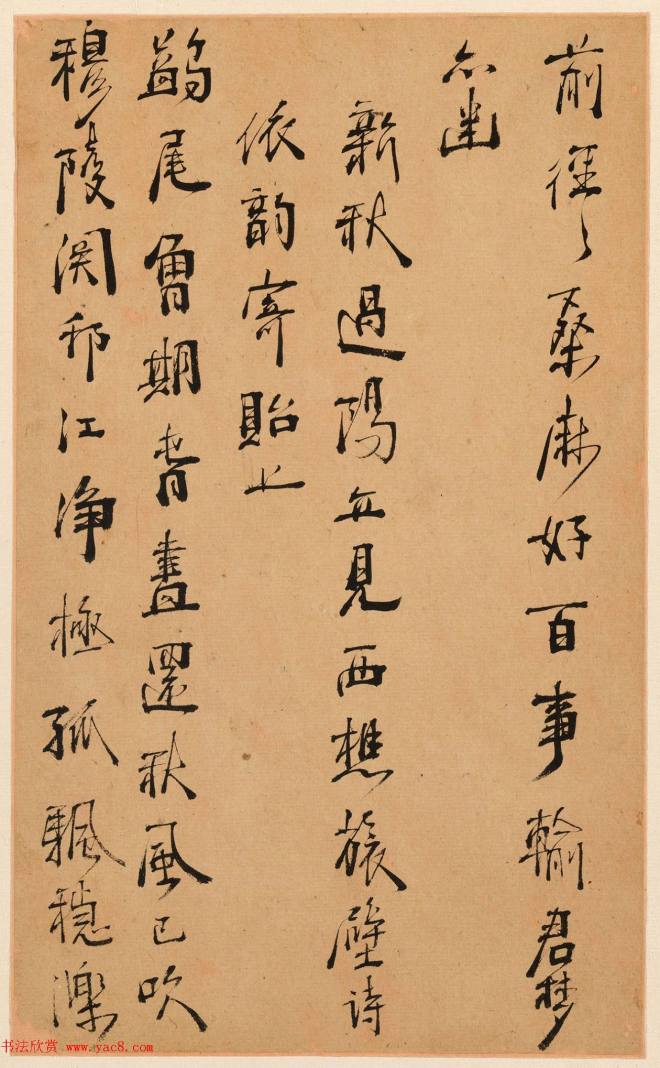 前桑麻好百事輸君夢
新秋過陽丘見西樵旅壁詩
依韵寄貽上
尾曾期春晝還秋風已吹
穆陵関邗江净極孤颿穩濼
书法欣赏 www.yac8.com